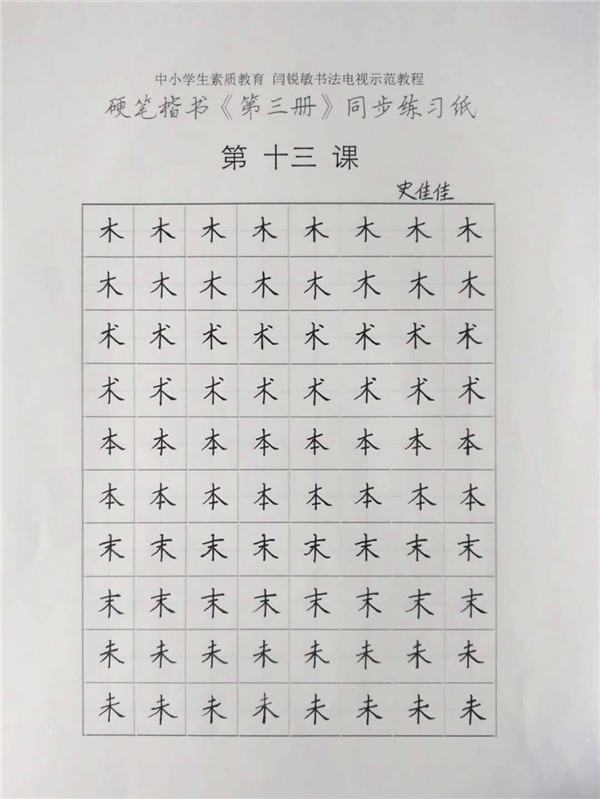 中小学生素质教育 闫锐敏书法电视示范教程
硬笔楷书《第三册》同步练习纸
第 十三 课
史佳佳
木 木 木 木 木 木 木 木
木 木 木 木 木 木 木 木
术 术 术 术 术 术 术 术
术 术 术 术 术 术 术 术
本 本 本 本 本 本 本 本
本 本 本 本 本 本 本 本
末 末 末 末 末 末 末 末
末 末 末 末 末 末 末 末
未 未 未 未 未 未 未 未
未 未 未 未 未 未 未 未